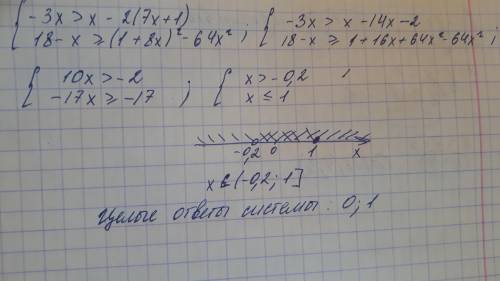 { -3x > x - 2(7x+1) ; { -3x > x - 14x - 2
18 - x ⩾ (1 + 8x)² - 64x² ; 18 - x ⩾ 1 + 16x + 64x² - 64x² ;
{ 10x > -2 ; { x > -0,2
-17x ⩾ -17 ; x ≤ 1
-0,2 0 1 x
x ∈ (-0,2; 1]
Целые ответы системы: 0; 1